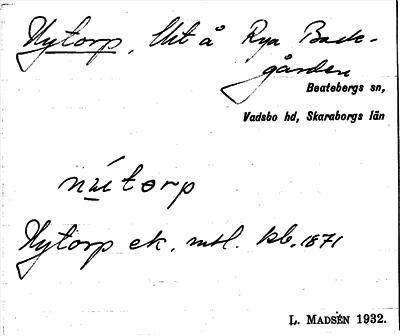 Nytorp, lht å Rya Back-
gården
Beatebergs sn,
Vadsbo hd, Skaraborgs län
nútorp
Nytorp ek. mtl. kb. 1871
L. MADSÉN 1932.